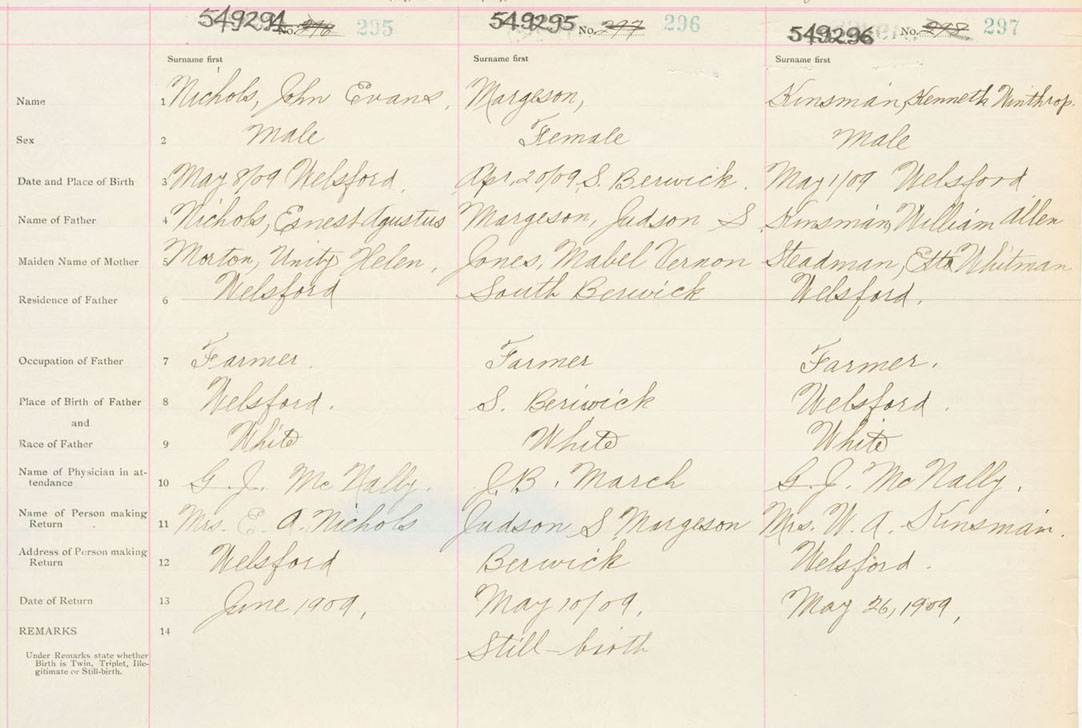 549294 No. 276 295 549295 No. 277 296 549296 No. 278 297
Surname first Surname first Surname first
Name 1 Nichols, John Evans, Margeson, Kinsman, Kenneth Winthrop.
Sex 2 Male Female Male
Date and Place of Birth 3 May 8/09 Welsford, Apr, 20/09, S. Berwick. May 1/09 Welsford
Name of Father 4 Nichols, Ernest Agustus Margeson, Judson S. Kinsman, William Allen
Maiden Name of Mother 5 Morton, Unity Helen, Jones, Mabel Vernon Steadman, Etta Whitman
Residence of Father 6 Welsford South Berwick Welsford.
Occupation of Father 7 Farmer. Farmer Farmer.
Place of Birth of Father 8 Welsford. S. Beriwick Welsford.
and
Race of Father 9 White White White
Name of Physician in at-
tendance 10 G. J. McNally. J. B. March G. J. McNally.
Name of Person making
Return 11 Mrs. E. A. Nichols Judson S. Margeson Mrs. W. A. Kinsman.
Address of Person making
Return 12 Welsford Berwick Welsford.
Date of Return 13 June 1909, May 10/09, May 26, 1909,
REMARKS 14 Still-birth
Under Remarks state whether
Birth is Twin, Triplet, Ille-
gitimate or Still-birth.